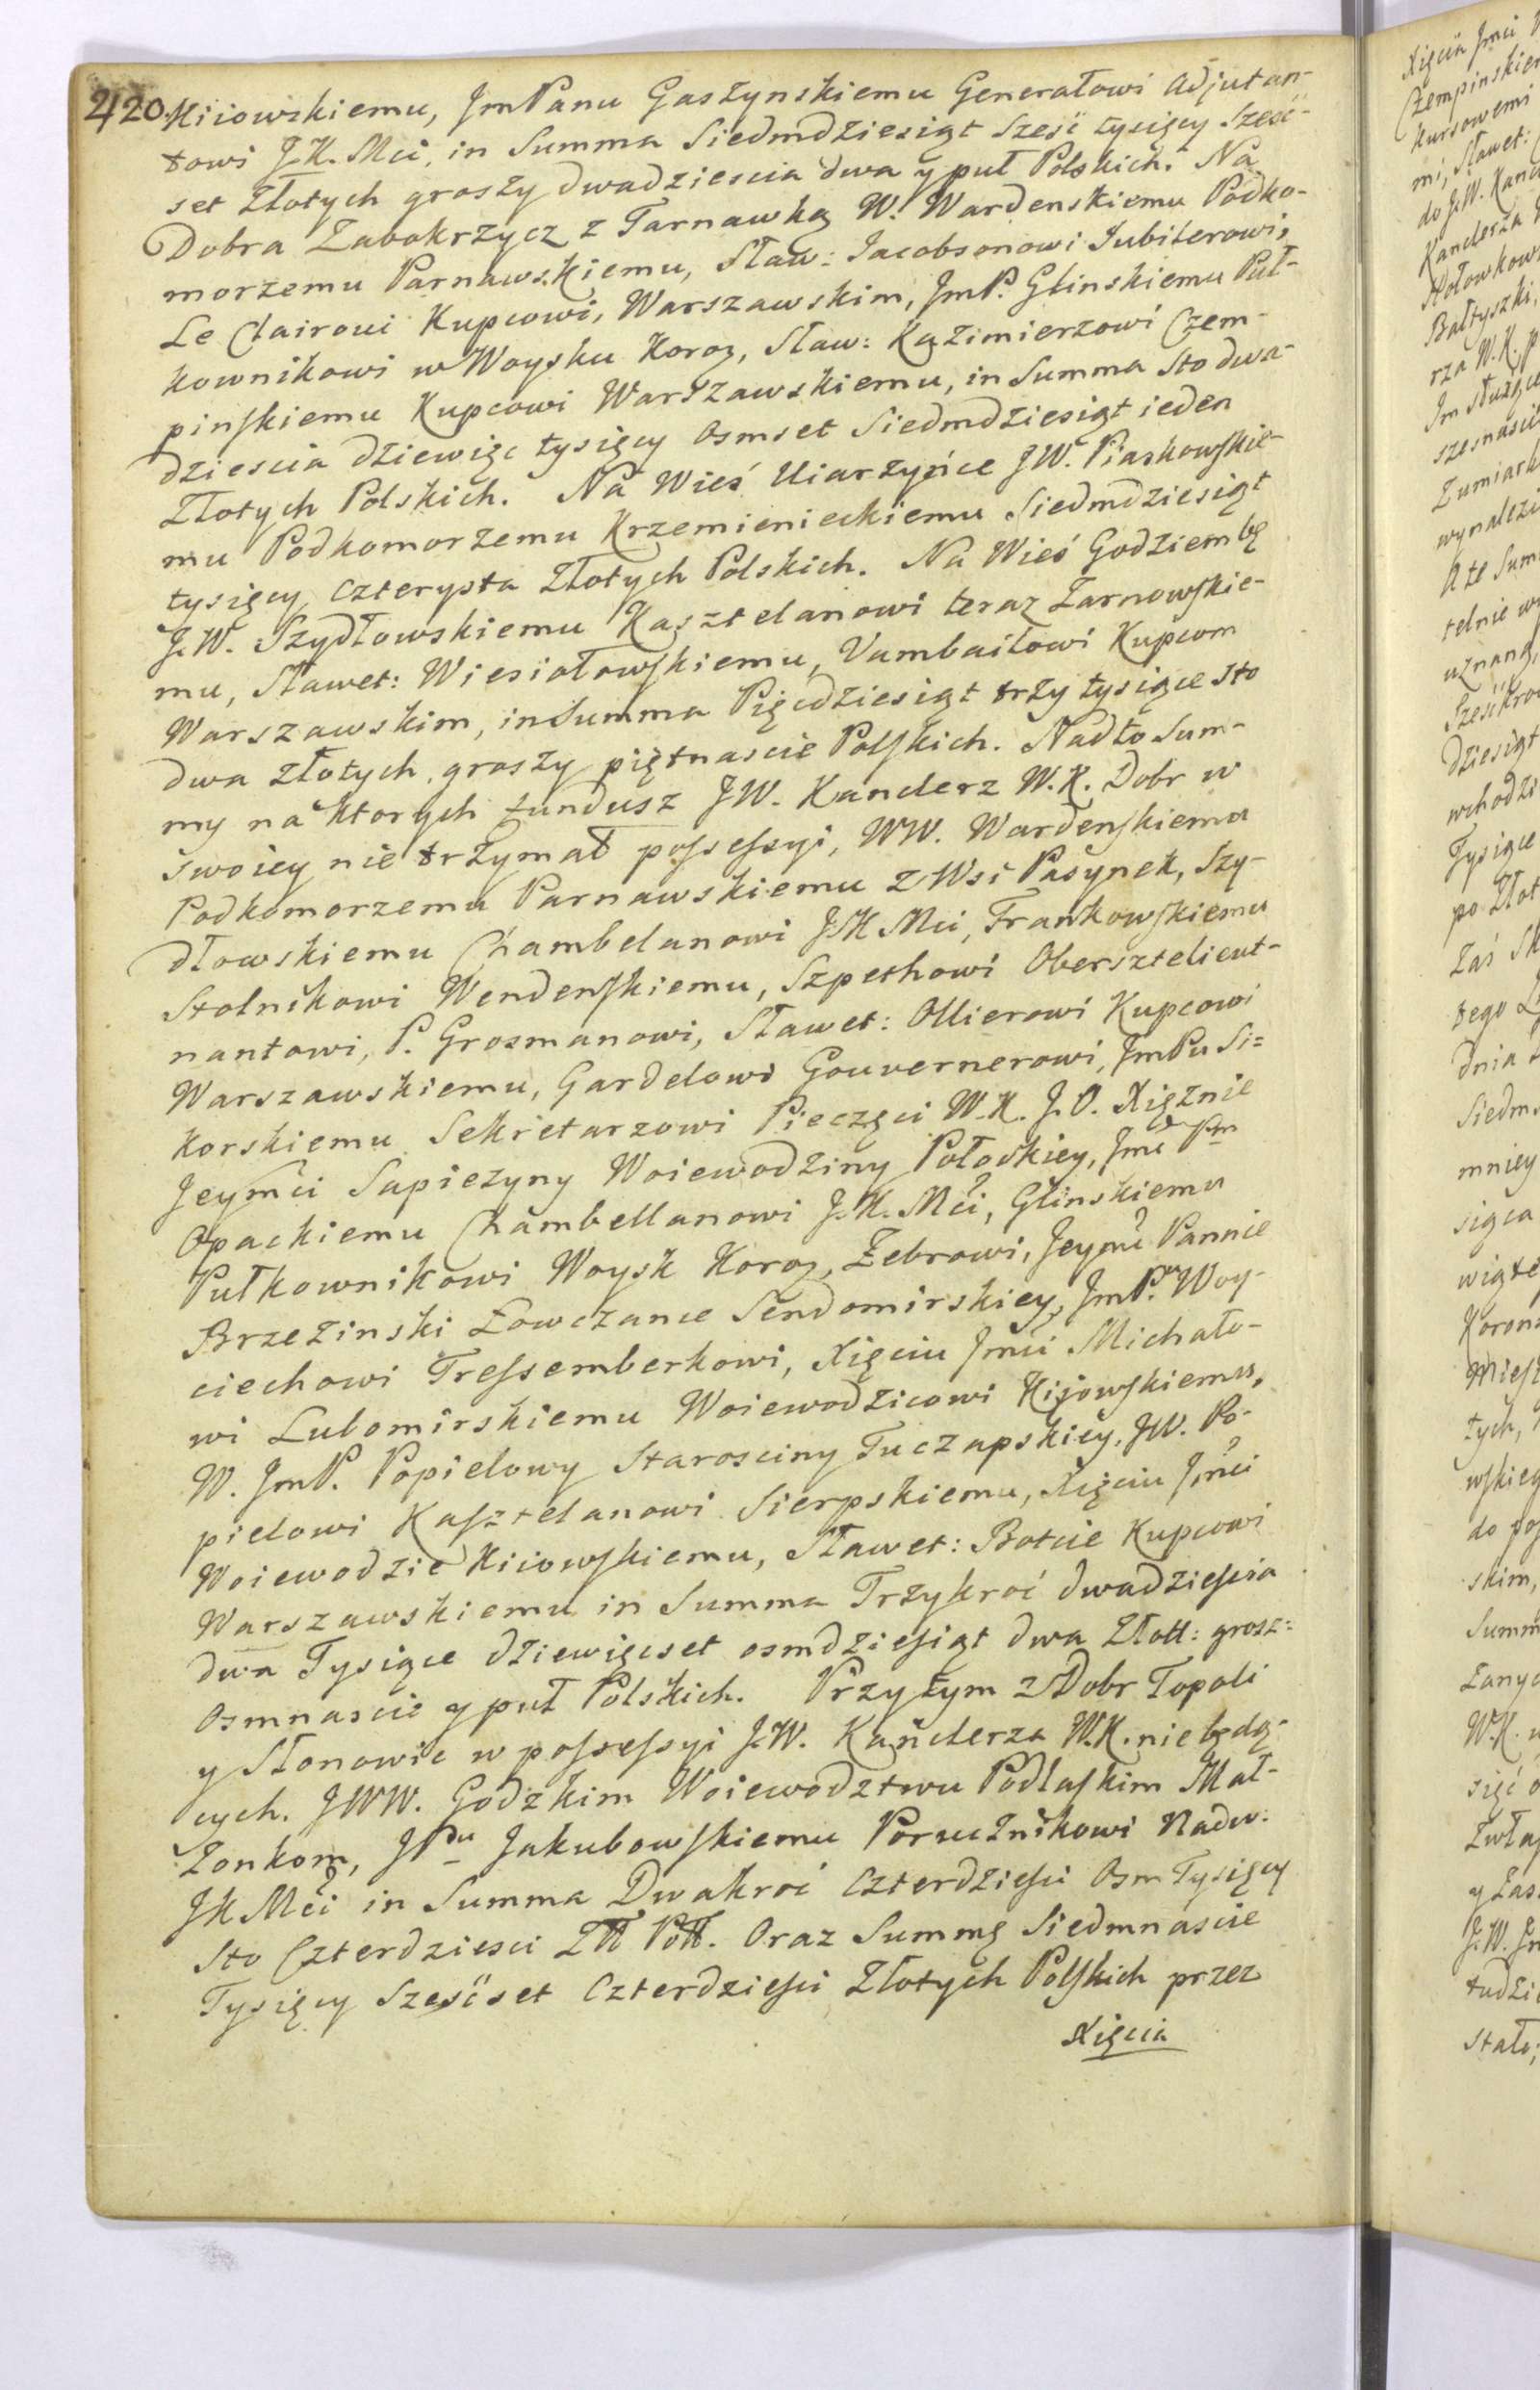 420. Kiiowskiemu, JmPanu Gaszynskiemu Generałowi Adjutan-
towi J.K. Mci, in Summa Siedmdziesiąt Sześć tysięcy Sześć-
set Złotych groszy dwadziescia dwa y puł Polskich. Na
Dobra Zabokrzycz z Tarnawką W. Wardenskiemu Podko-
morzemu Parnawskiemu, Sław: Jacobsonowi Jubilerowi,
Le Clairowi Kupcowi, Warszawskim, JmP. Glinskiemu Puł-
kownikowi w Woysku Koroq, Sław: Kazimierzowi Czem-
pinskiemu Kupcowi Warszawskiemu, in Summa Sto dwa-
dziescia dziewięc tysięcy Osmset Siedmdziesiąt ieden
Złotych Polskich. Na Wieś Uiarzyńce JW. Piaskowskie-
mu Podkomorzemu Krzemienieckiemu Siedmdziesiąt
tysięcy czterysta Złotych Polskich. Na Wieś Godziembę
J.W. Szydłowskiemu Kasztelanowi teraz Zarnowskie-
mu, Sławet: Wiesiołowskiemu, Vambailowi Kupcom
Warszawskim, in Summa Pięćdziesiąt trzy tysiące sto
dwa złotych, groszy piętnascie Polskich. Nadto Sum-
my na ktorych fundusz JW. Kanclerz W.K. Dobr w
swoiey nie trzymał possessyi, WW. Wardenskiemu
Podkomorzemu Parnawskiemu z Wsi Pasynek, Szy-
dłowskiemu Chambelanowi JK Mci, Frankowskiemu
Stolnikowi Wendenskiemu, Szpethowi Obersztelieut-
nantowi, P. Grosmanowi, Sławet: Ollierowi Kupcowi
Warszawskiemu, Gardelowi Gouvernerowi, JmPu Si=
korskiemu Sekretarzowi Pieczęci W.K. J.O. Xiężnie
Jeymci Sapiezyny Woiewodziny Połockiey, Jmć Pm
Opackiemu Chambellanowi J.K. Mci, Glinskiemu
Pułkownikowi Woysk Koroq, Zebrowi, Jeymć Pannie
Brzezinski Łowczance Sendomirskiey, JmP. Woy-
ciechowi Tressemberkowi, Xięciu Jmci Michało-
wi Lubomirskiemu Woiewodzicowi Kijowskiemu,
W. JmP. Popielowy Starosciny Tuczapskiey, JW. Po-
pielowi Kasztelanowi Sierpskiemu, Xięciu Jmci
Woiewodzie Kiiowskiemu, Sławet: Botcie Kupcowi
Warszawskiemu in Summa Trzykroć dwadziescia
dwa Tysiące dziewięcset osmdziesiąt dwa Złott: grosz:
Osmnascie y puł Polskich. Przytym z Dobr Topoli
y Słonowic w possessyi J.W. Kanclerza W.K. nie będą-
cych. JWW. Godzkim Woiewodztwu Podlaskim Mał-
żonkom, JPu Jakubowskiemu Porucznikowi Nadw:
JK Mci in Summa Dwakroć Czterdziesci Osm Tysięcy
Sto Czterdziesci Złł Poll. Oraz Summę Siedmnascie
Tysięcy Sześćset Czterdziesci Złotych Polskich przez
Xięcia